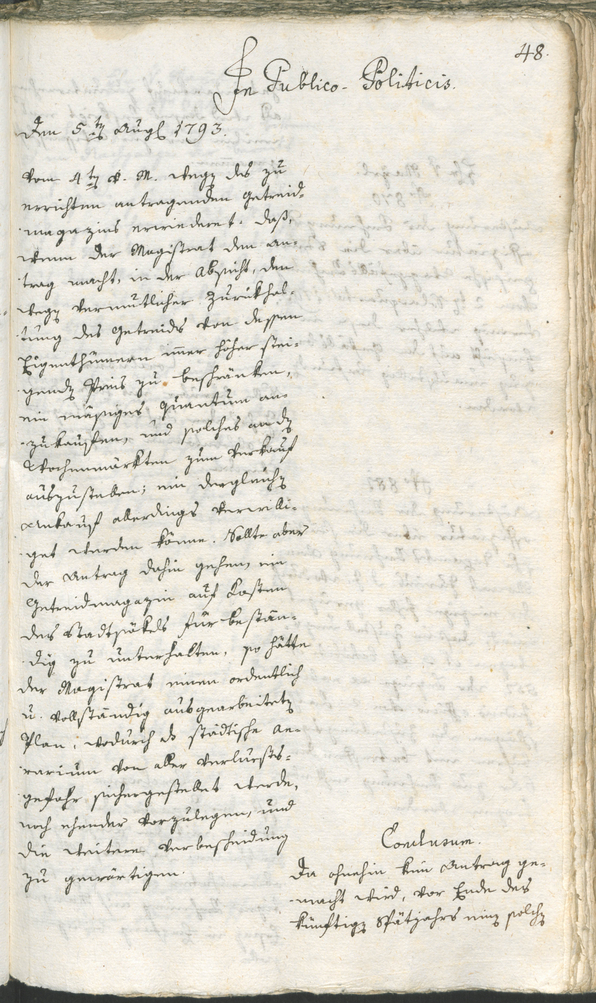 48.
In Publico-Politicis.
Den 5ten Augl 1793.
vom 4ten v. M. wegen des zu
errichten antragenden Getreid-
magazins erwiederet. Daß,
wenn der Magistrat den An-
trag macht, in der Absicht, den
wegen vermutlicher Zurückhal-
tung des Getreids von dessen
Eigenthümern imer höher stei-
genden Preis zu beschränken,
ein mäßiges Quantum an-
zukaufen, und solches an den
Wochenmärkten zum Verkauf
auszustellen; ein dergleichen
Ankauf allerdings verwilli-
get werden könne. Sollte aber
der Antrag dahin gehen, ein
Getreidmagazin auf Kosten
des Stadtsäkels für bestän-
dig zu unterhalten, so hätte
der Magistrat einen ordentlich
u. vollständig ausgearbeiteten
Plan, wodurch das städtische Ae-
rarium von aller Verlursts-
gefahr sichergestellet werde,
noch ehender vorzulegen, und
die weitere Verbescheidung
zu gewärtigen.
Conclusum.
Da ohnehin kein Antrag ge-
macht wird, vor Ende des
künftigen Spätjahrs solchen